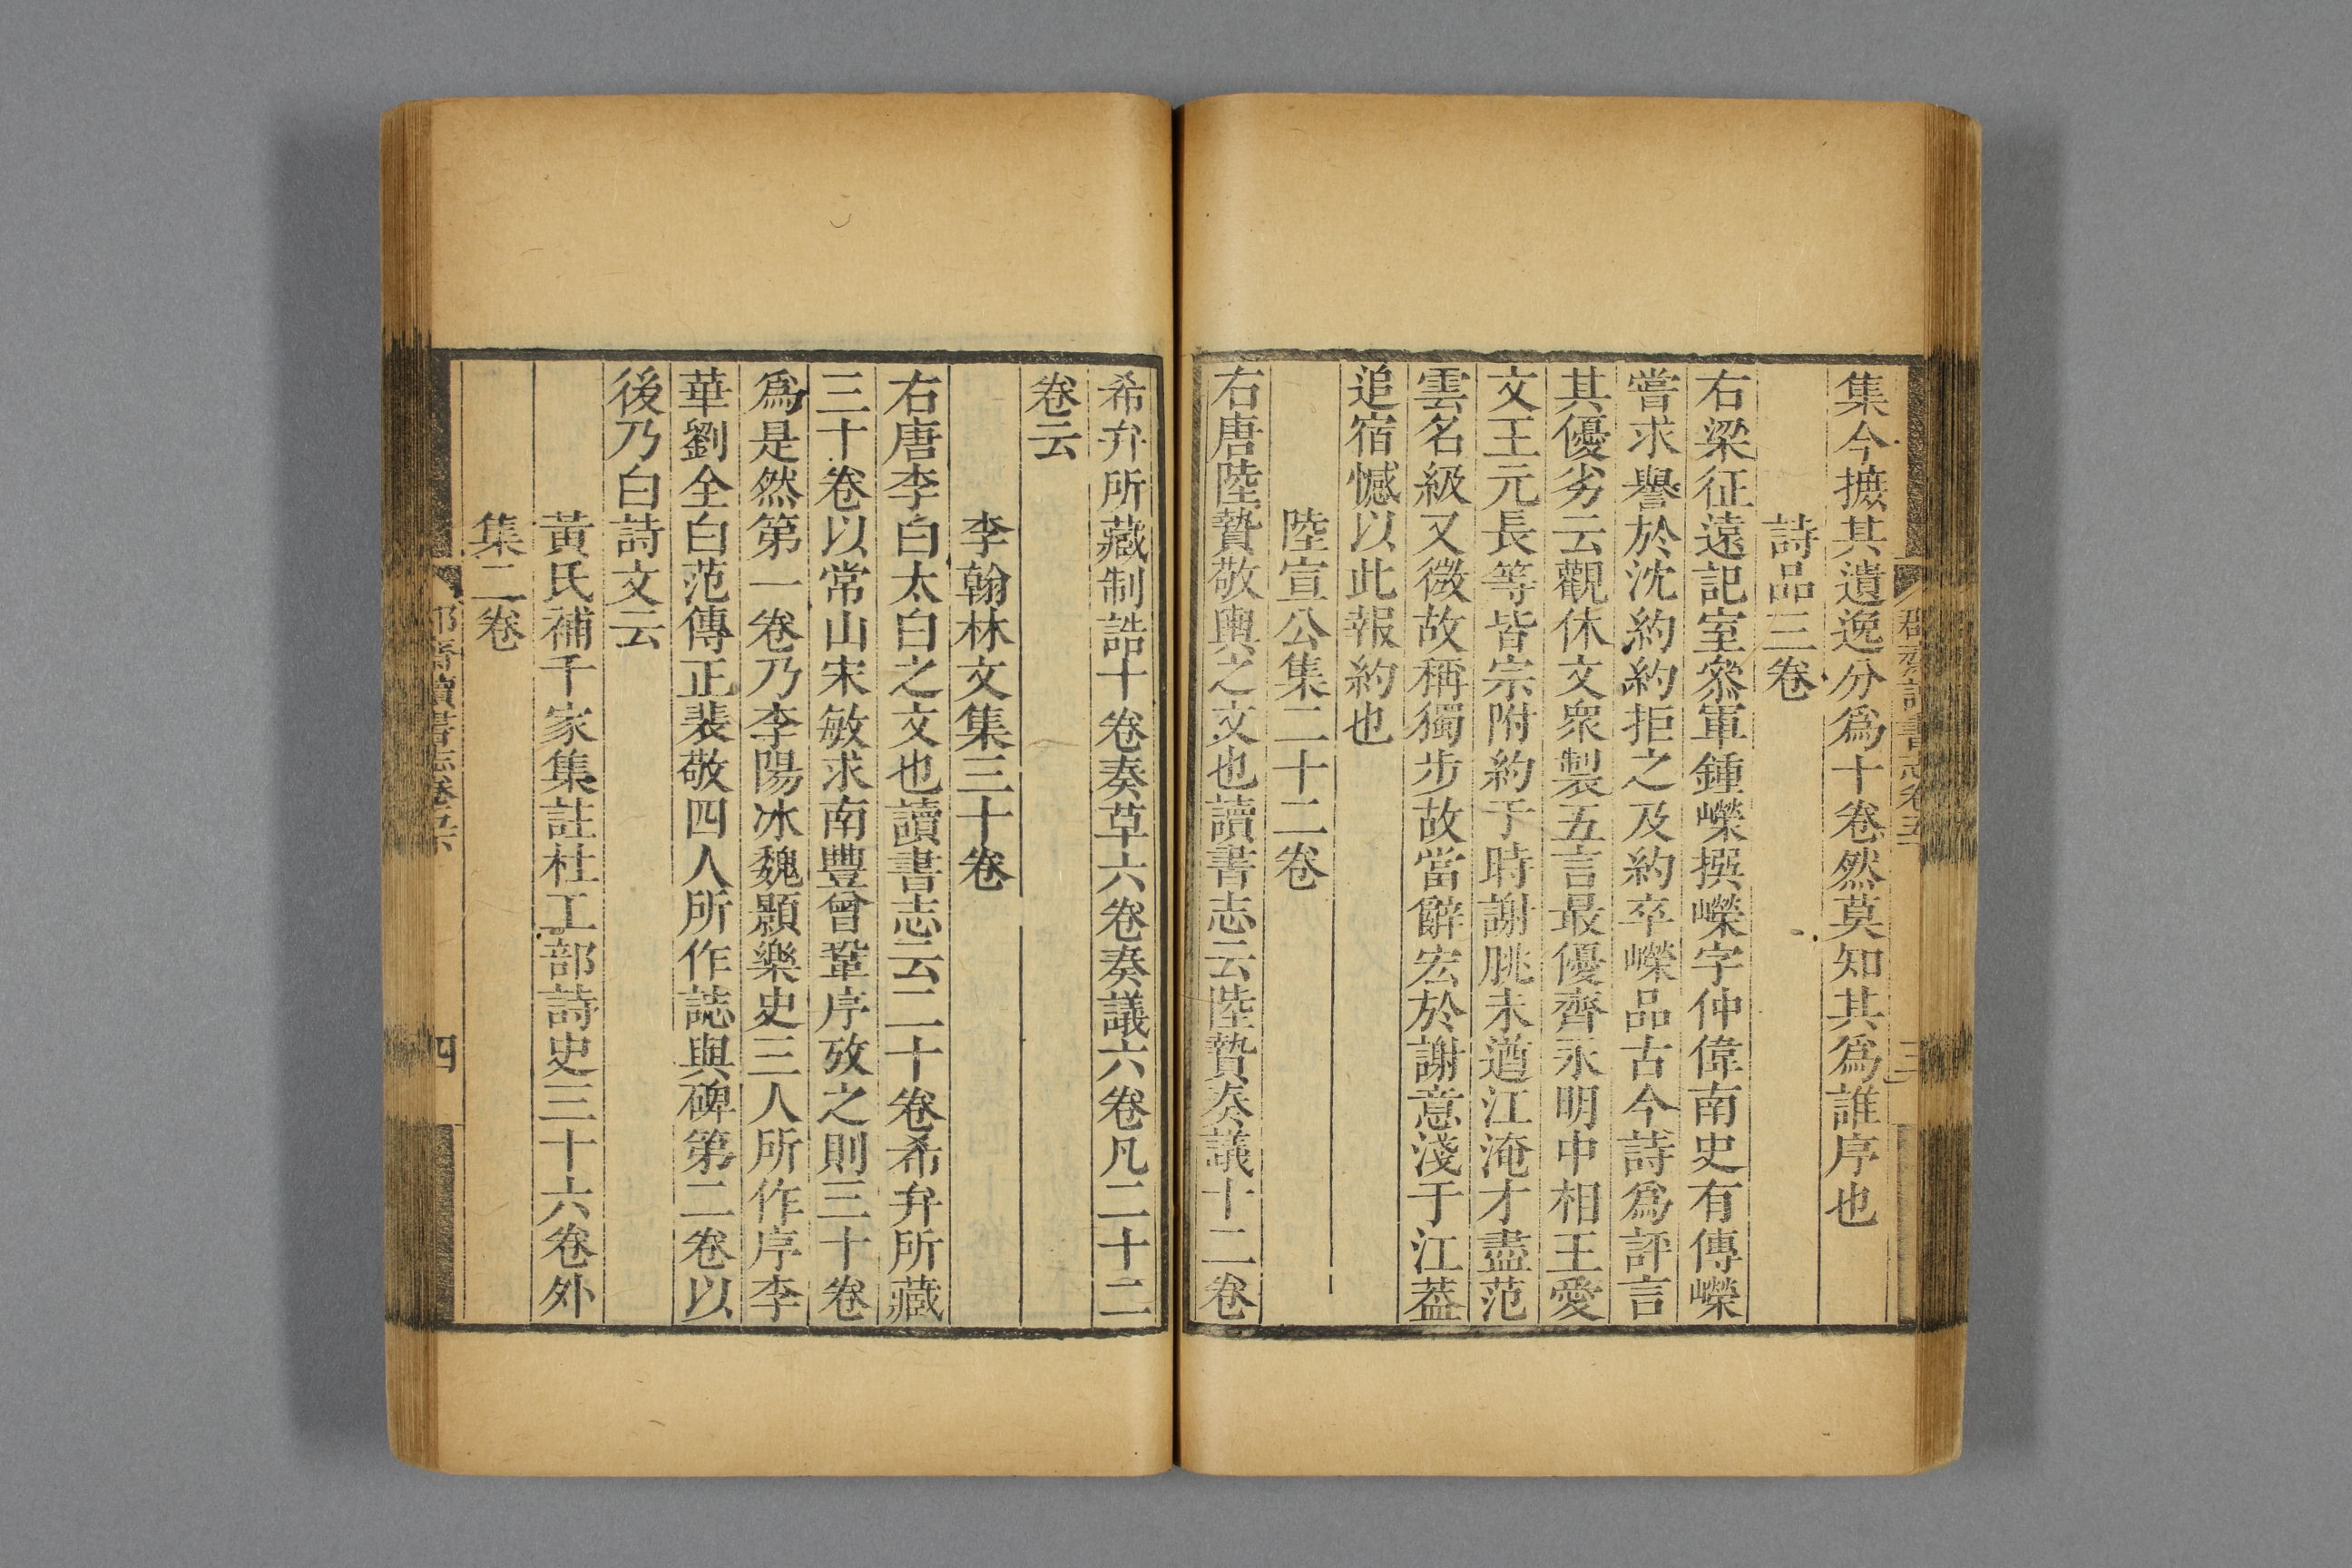 集今摭其遺逸分爲十卷然莫知其爲誰序也
詩品三卷
右梁征遠記室叅軍鍾嶸撰嶸字仲偉南史有傳嶸
嘗求譽於沈約約拒之及約卒嶸品古今詩爲評言
其優劣云觀休文衆製五言最優齊永明中相王愛
文王元長等皆宗附約于時謝朓未遒江淹才盡范
雲名級又微故稱獨步故當辭宏於謝意淺于江葢
追宿憾以此報約也
陸宣公集二十二卷
右唐陸贄敬輿之文也讀書志云陸贄奏議十二卷
希弁所藏制誥十卷奏草六卷奏議六卷凡二十二
卷云
李翰林文集三十卷
右唐李白太白之文也讀書志云二十卷希弁所藏
三十卷以常山宋敏求南豐曾鞏序攷之則三十卷
爲是然第一卷乃李陽冰魏顥樂史三人所作序李
華劉全白范傳正裴敬四人所作誌與碑第二卷以
後乃白詩文云
黃氏補千家集註杜工部詩史三十六卷外
集二卷
四